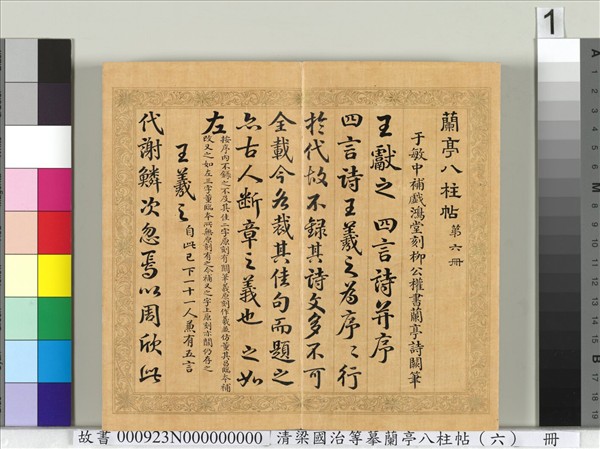 蘭亭八柱帖第六冊
于敏中補戲鴻堂刻柳公權書蘭亭詩闕筆
王獻之四言詩并序
四言詩王羲之為序序行
於代故不錄其詩文多不可
全載今各裁其佳句而題之
亦古人斷章之義也之如
左
按序內不錄之不及其佳二字原刻有闕筆義原刻作義並仿董其昌臨本補
改又之如左三字董臨本所無原刻有之今補又之字上原刻亦闕仍存之
王羲之自此已下一十一人兼有五言
代謝鱗次忽焉以周欣此
1
故書 000923N000000000 清梁國治等摹蘭亭八柱帖(六) 冊